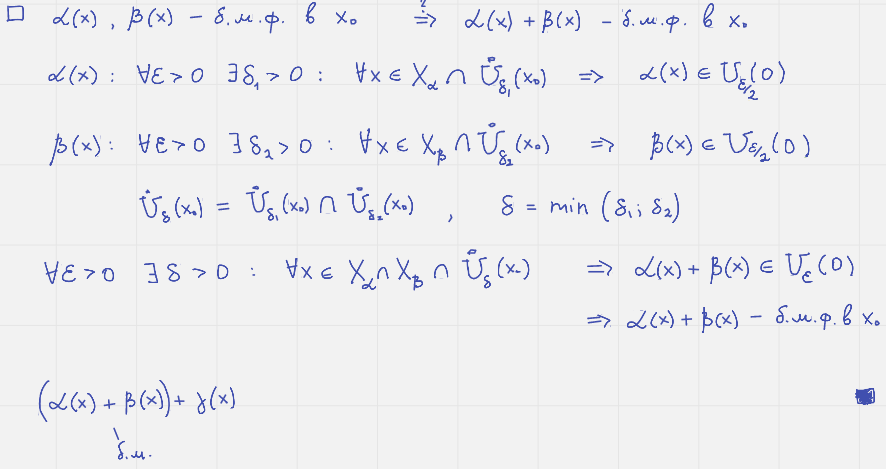 □ α(x), β(x) – б.м.ф. в x₀ ⇒ (?) α(x) + β(x) – б.м.ф. в x₀
α(x): ∀ε > 0 ∃δ₁ > 0 : ∀x ∈ X_α ∩ U̇_δ₁(x₀) ⇒ α(x) ∈ U_ε/2(0)
β(x): ∀ε > 0 ∃δ₂ > 0 : ∀x ∈ X_β ∩ U̇_δ₂(x₀) ⇒ β(x) ∈ U_ε/2(0)
U̇_δ(x₀) = U̇_δ₁(x₀) ∩ U̇_δ₂(x₀), δ = min (δ₁; δ₂)
∀ε > 0 ∃δ > 0 : ∀x ∈ X_α ∩ X_β ∩ U̇_δ(x₀) ⇒ α(x) + β(x) ∈ U_ε(0)
⇒ α(x) + β(x) – б.м.ф. в x₀
(α(x) + β(x)) + γ(x)
■
б.м.